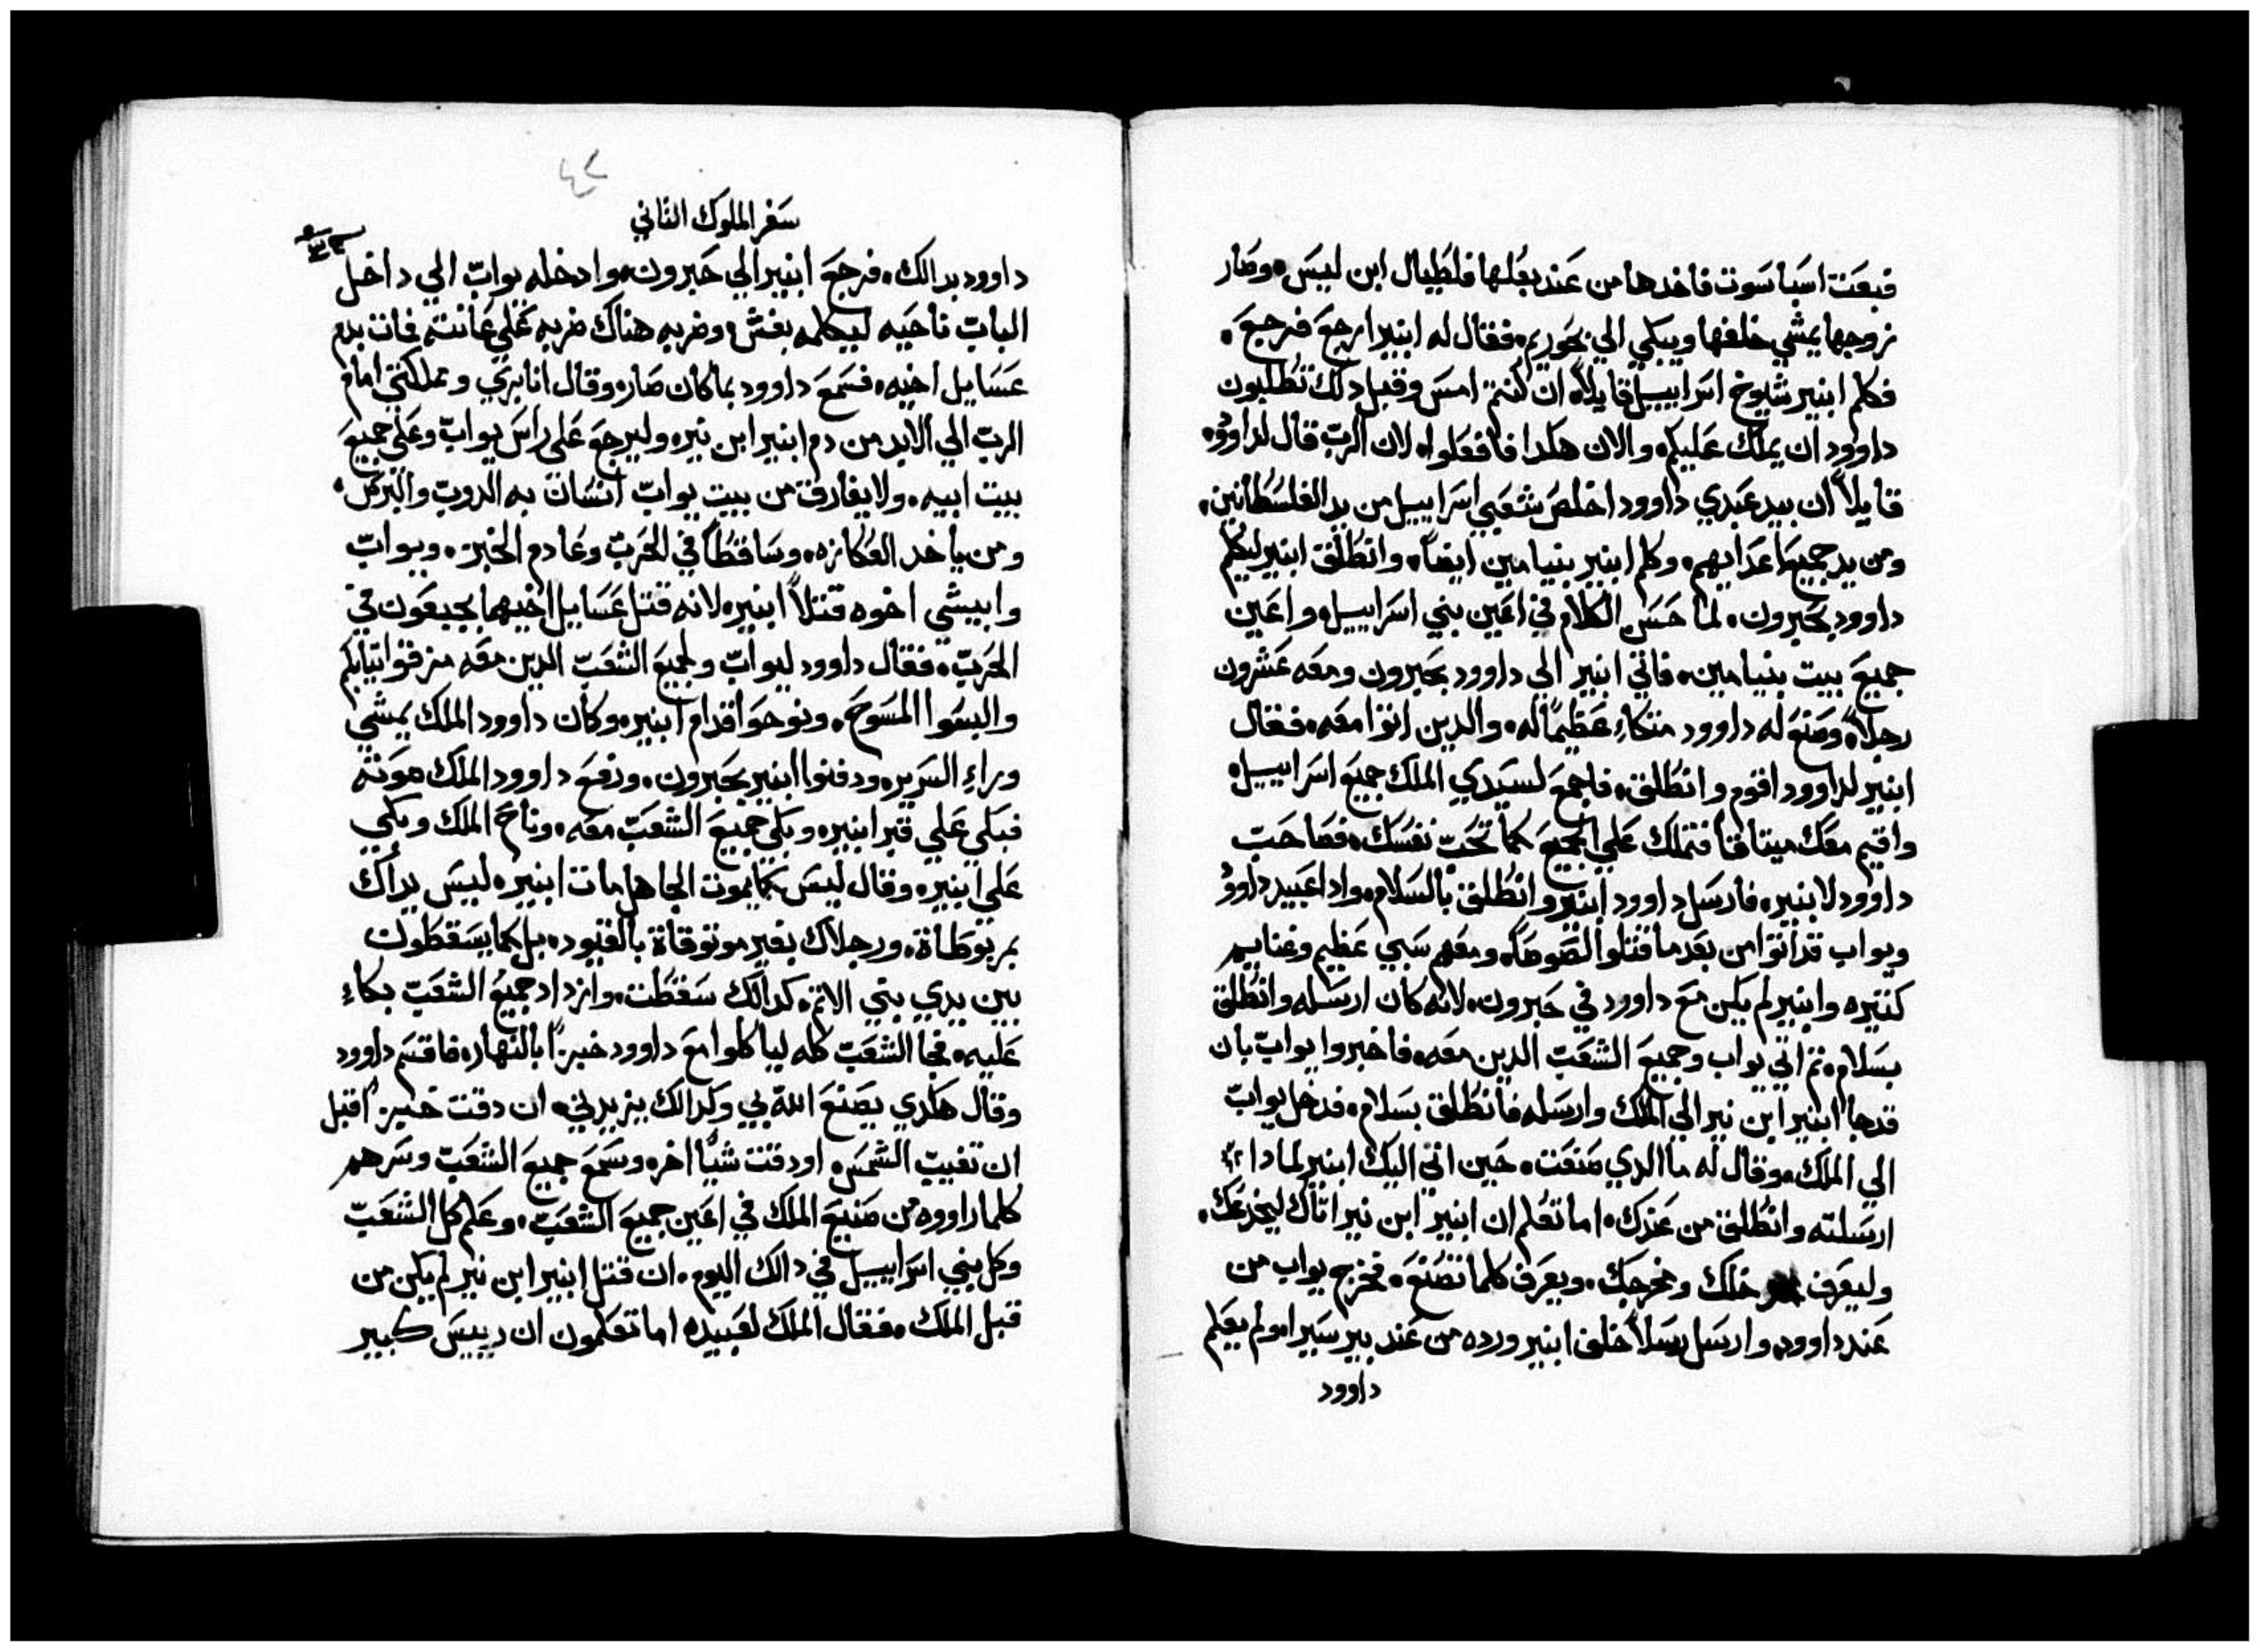 فبعت اسباسوت فاخدها من عند بعلها فلطيال ابن ليس وصار
زوجها يمشي خلفها ويبكي الي بحوريم فقال له ابنير ارجع فرجع
فكلم ابنير شيوخ اسراييل قايلاً ان كنتم امس وقبل دلك تطلبون
داوود ان يملك عليكم والان هكدا فافعلوا لان الرب قال لداوود
قايلاً ان بيد عبدي داوود اخلص شعبي اسراييل من يد الفلسطانين
ومن يد جميع اعدايهم وكلم ابنير بنيامين ايضاً وانطلق ابنير ليكلم
داوود بحبرون لما حسن الكلام في اعين بني اسراييل واعين
جميع بيت بنيامين فاتي ابنير الي داوود بحبرون ومعه عشرون
رجلاً وصنع له داوود متكاءِ عظيماً له والدين اتوا معه فقال
ابنير لداوود اقوم وانطلق فاجمع لسيدي الملك جميع اسراييل
واقيم معك ميتاقاً فتملك علي الجميع كما تحب نفسك فصاحب
داوود لابنير فارسل داوود ابنير وانطلق بالسلام وادا عبيد داوود
ويواب قد اتوا من بعد ما قتلوا لصوصاً ومعهم سبي عظيم وغنايم
كتيره وابنير لم يكن مع داوود في حبرون لانه كان ارسله وانطلق
بسلام تم اتي يواب وجميع الشعب الدين معه فاخبروا يواب بان
قد جا ابنير ابن نير الي الملك وارسله فانطلق بسلام فدخل يواب
الي الملك وقال له ما الدي صنعت حين اتي اليك ابنير لمادا
ارسلته وانطلق من عندك اما تعلم ان ابنير ابن نير اتاك ليخدعك
وليعرف خلك ومخرجك ويعرف كلما تصنع فخرج يواب من
عند داوود وارسل رسلاً خلف ابنير ورده من عند بير سيرا ولم يعلم
داوود
٤٢
سفر الملوك التاني
داوود بدالك فرجع ابنير الي حبرون وادخله يواب الي داخل
الباب ناحيه ليكلمه بغش وضربه هناك ضربه علي عانته فمات بدم
عسايل اخيه فسمع داوود بما كان صار وقال انا بري ومملكتي امام
الرب الي الابد من دم ابنير ابن نير وليرجع علي راس يواب وعلي جميع
بيت ابيه ولا يفارق من بيت يواب انسان به الدوب والبرص
ومن ياخد العكازه وساقطاً في الحرب وعادم الخبز ويواب
وابيشي اخوه قتلاً ابنير لانه قتل عسايل اخيهما بجبعون في
الحرب فقال داوود ليواب ولجميع الشعب الدين معه مزقوا تيابكم
والبسوا المسوح ونوحوا قدام ابنير وكان داوود الملك يمشي
وراءِ السرير ودفنوا ابنير بحبرون ورفع داوود الملك صوته
فبكي علي قبر ابنير وبكي جميع الشعب معه وناح الملك وبكي
علي ابنير وقال ليس كما يموت الجاهل مات ابنير ليس يداك
بمربوطاة ورجلاك بغير موتوقاة بالقيود بل كما يسقطون
بين يدي بني الاتم كدالك سقطت وازداد جميع الشعب بكاءِ
عليه فجا الشعب كله لياكلوا مع داوود خبزاً بالنهار فاقسم داوود
وقال هكدي يصنع الله بي وكدالك يزيدني ان دقت خبزاً قبل
ان تغيب الشمس او دقت شياً اخر وسمع جميع الشعب وسرهم
كلما راووه من صنيع الملك في اعين جميع الشعب وعلم كل الشعب
وكل بني اسراييل في دالك اليوم ان قتل ابنير ابن نير لم يكن من
قبل الملك فقال الملك لعبيده اما تعلمون ان رييس كبير